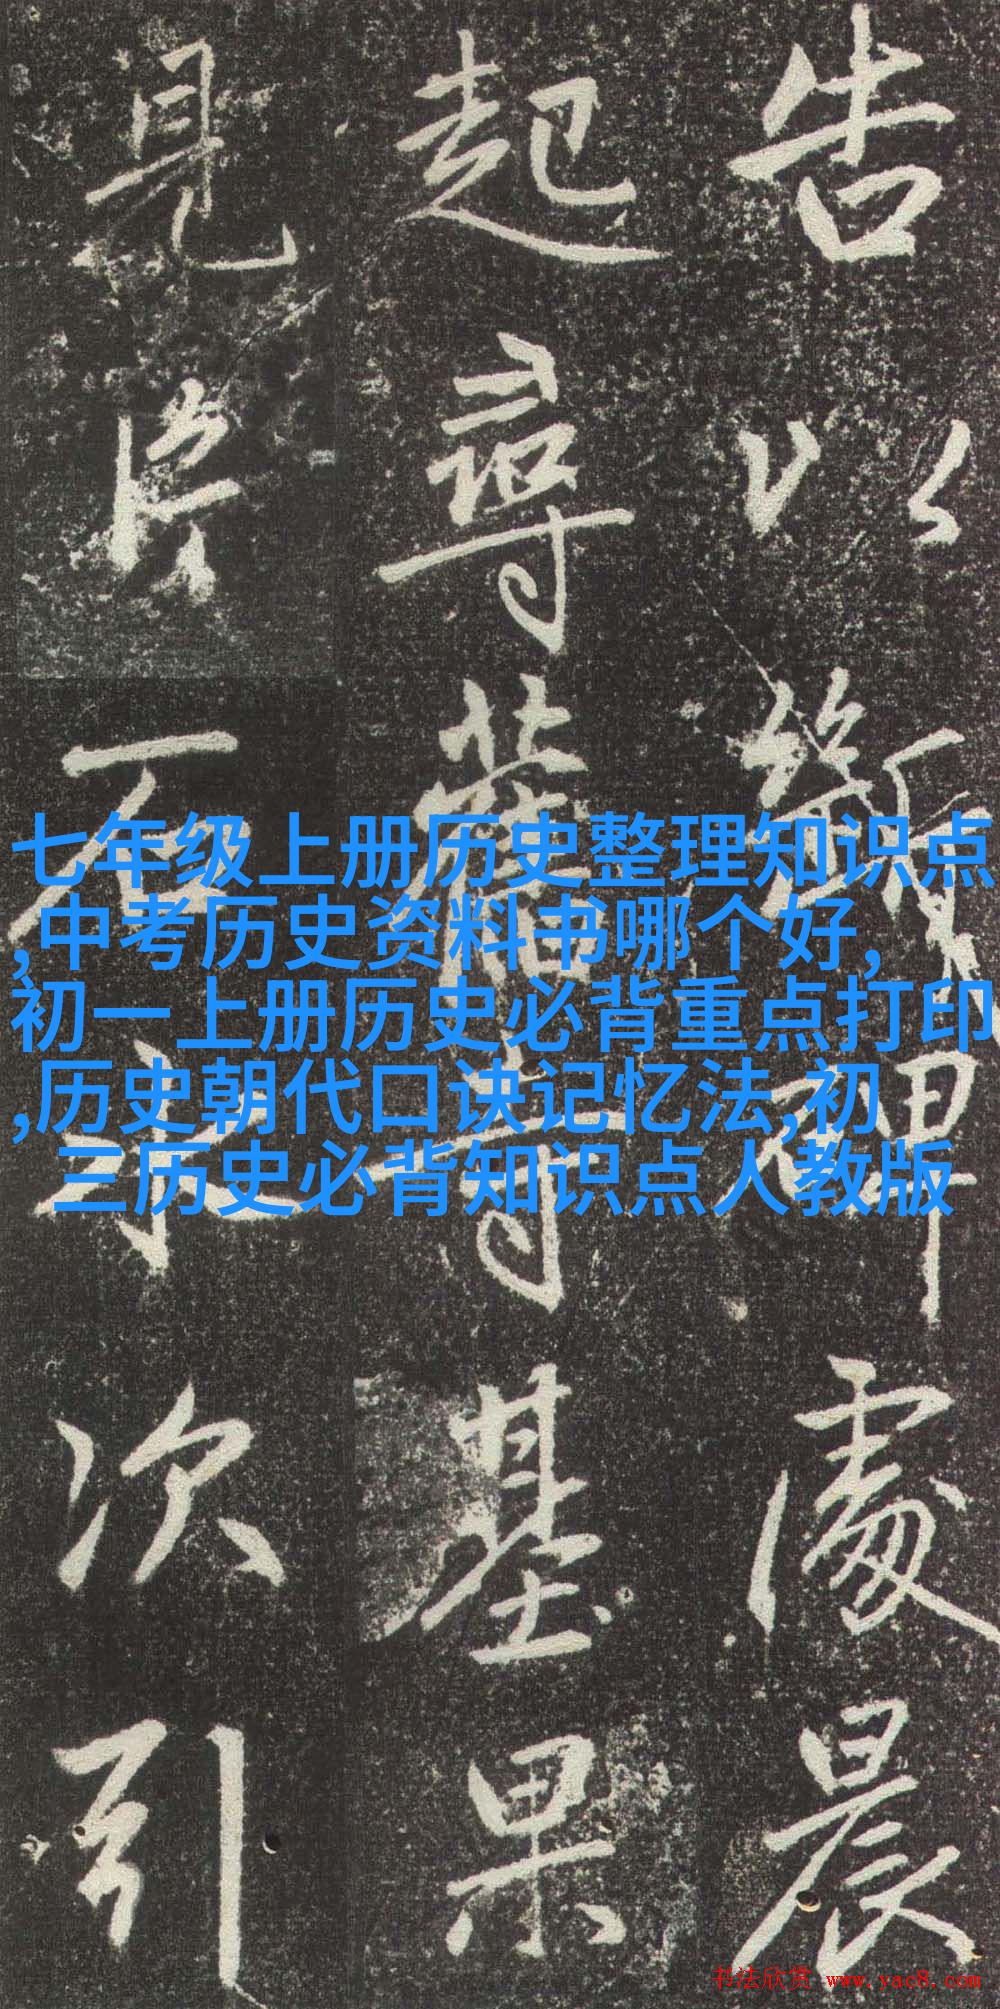 告以碑處晨
起尋舊寺基果
見片石次引
七年级上册历史整理知识点
,中考历史资料书哪个好,
初一上册历史必背重点打印
,历史朝代口诀记忆法,初
三历史必背知识点人教版
书法欣赏 www.yac8.com